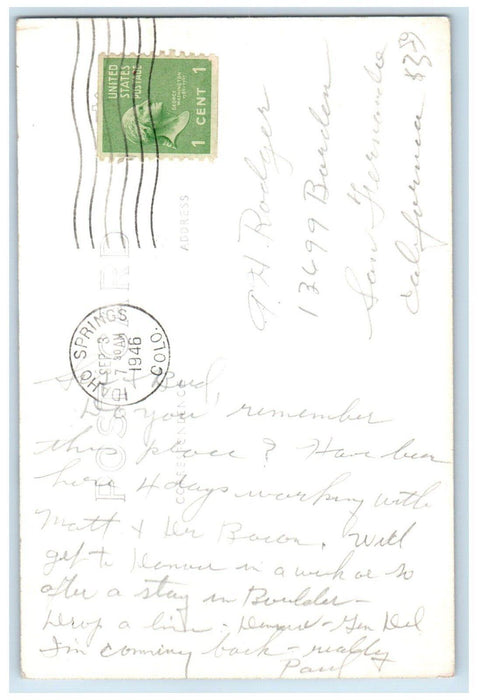 UNITED
STATES
POSTAGE
GEORGE
WASHINGTON
1 CENT 1
IDAHO SPRINGS
SEP 3
7 30 AM
1946
COLO.
POST CARD
ADDRESS
CORRESPONDENCE
P. H. Rodger
13699 Borden
San Fernando
California
Do you remember
this place? Have been
here 4 days working with
Matt & Bacon. Will
get to Denver in a week or so
after a stay in Boulder -
Drop a line - Denver - Gen Del
I'm coming back - really
Paul